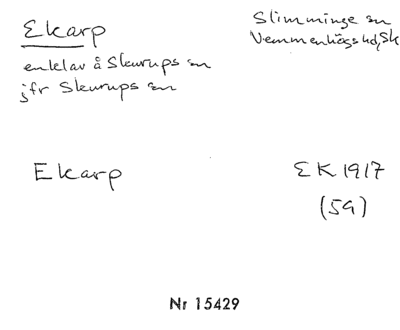 Ekarp
Slimminge sn
Vemmenhögs hd, Sk
enklav å Skurups sn
jfr Skurups sn
Ekarp
EK 1917
(59)
Nr 15429